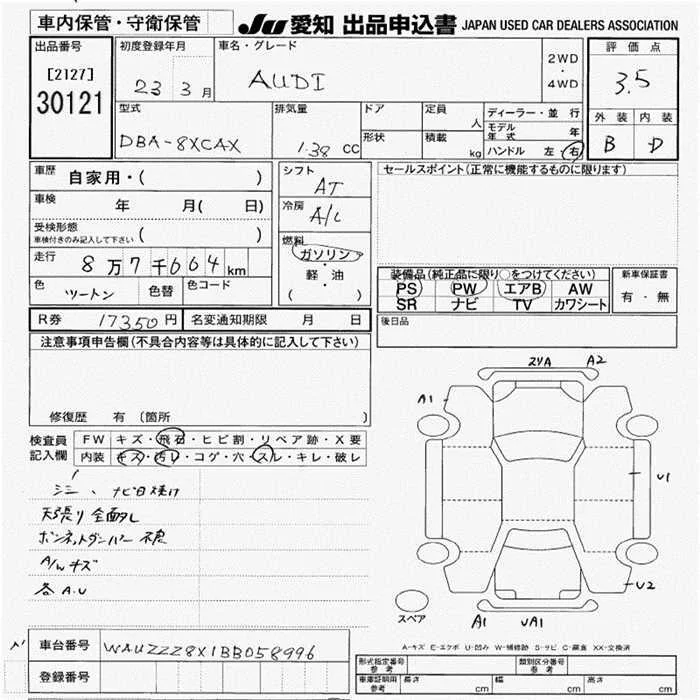 車内保管・守衛保管 JU 愛知 出品申込書 JAPAN USED CAR DEALERS ASSOCIATION
出品番号 初度登録年月 車名・グレード 2WD・4WD 評価点
[2127] 23 3月 AUDI 3.5
30121
型式 排気量 ドア 定員 人 ディーラー・並行 外装 内装
DBA-8XCAX 1.38 CC 形状 積載 kg モデル年式 年 B D
ハンドル 左 右
車歴 自家用・( ) シフト AT セールスポイント(正常に機能するものに限ります)
車検 年 月( 日) 冷房 A/C
受検形態 車検付きのみ記入して下さい ( ) 燃料 ガソリン・軽・油 ( )
走行 8万7千664km
装備品(純正品に限り○をつけてください) 新車保証書
色 ツートン 色替 色コード PS PW エアB AW 有・無
SR ナビ TV カワシート
R券 17350円 名変通知期限 月 日 後日品
注意事項申告欄(不具合内容等は具体的に記入して下さい)
修復歴 有 (箇所 )
検査員記入欄 FW キズ・飛石・ヒビ割・リペア跡・X要
内装 キズ・汚れ・コゲ・穴・スレ・キレ・破レ
シミ、ナビ日焼け
天張り全面タレ
ボンネットダンパー不良
A/Wキズ
各A.U
A2
A1
U1
U2
スペア A1 UA1
A-キズ E-エクボ U-凹み W-補修跡 S-サビ C-腐食 XX-交換済
車台番号 WAUZZZ8X1BB058996
登録番号
形式指定番号 参考 類別区分番号 参考
車庫証明用 参考 長さ cm 幅 cm 高さ cm